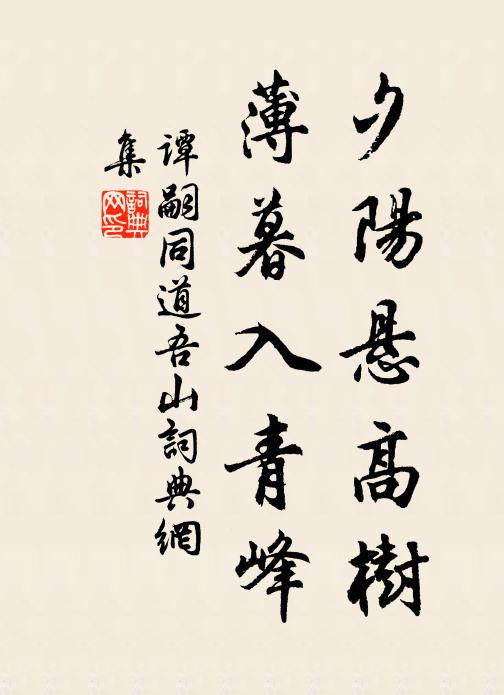 夕陽懸高樹
薄暮入青峰
譚嗣同道吾山詞典網
集
詞典網印